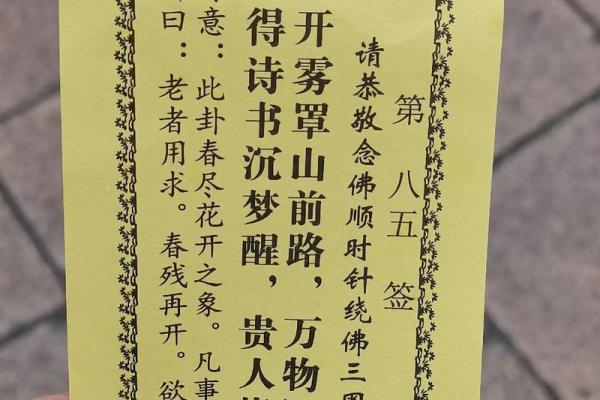 第八五签
请恭敬念佛顺时针绕佛三
开雾罩山前路，万物
得诗书沉梦醒，贵人
意：此卦春尽花开之象。凡事
曰：老者用求。春残再开。欲